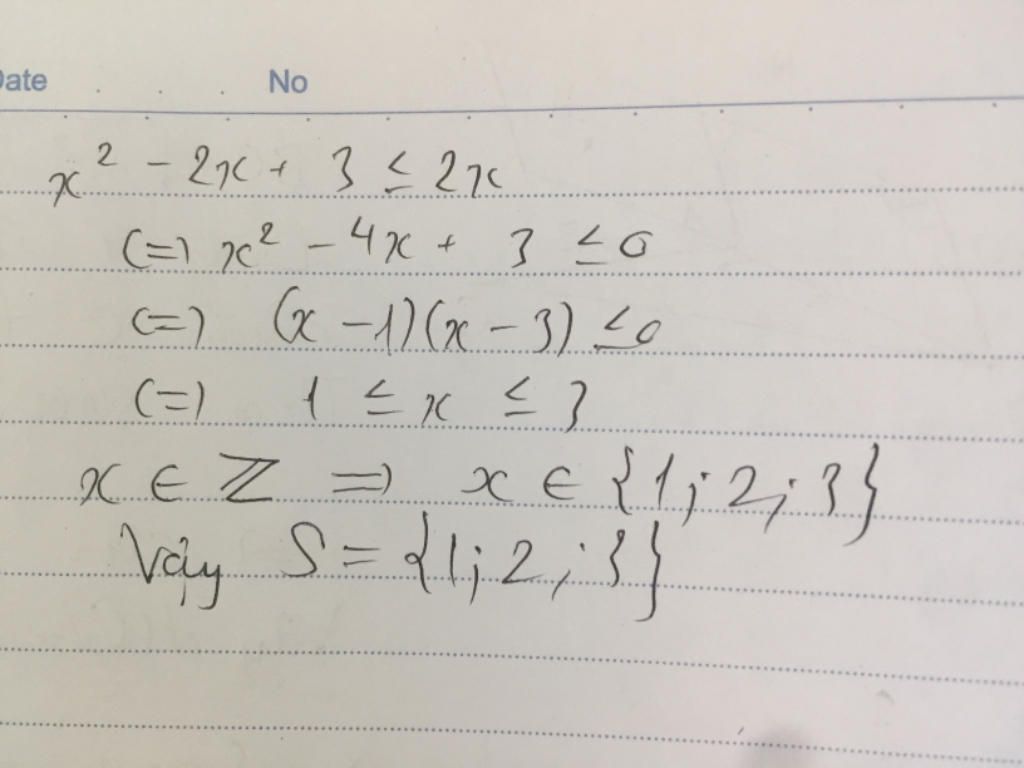 Date No
x² - 2x + 3 ≤ 2x
(=) x² - 4x + 3 ≤ 0
(=) (x - 1)(x - 3) ≤ 0
(=) 1 ≤ x ≤ 3
x ∈ ℤ => x ∈ {1; 2; 3}
Vậy S = {1; 2; 3}